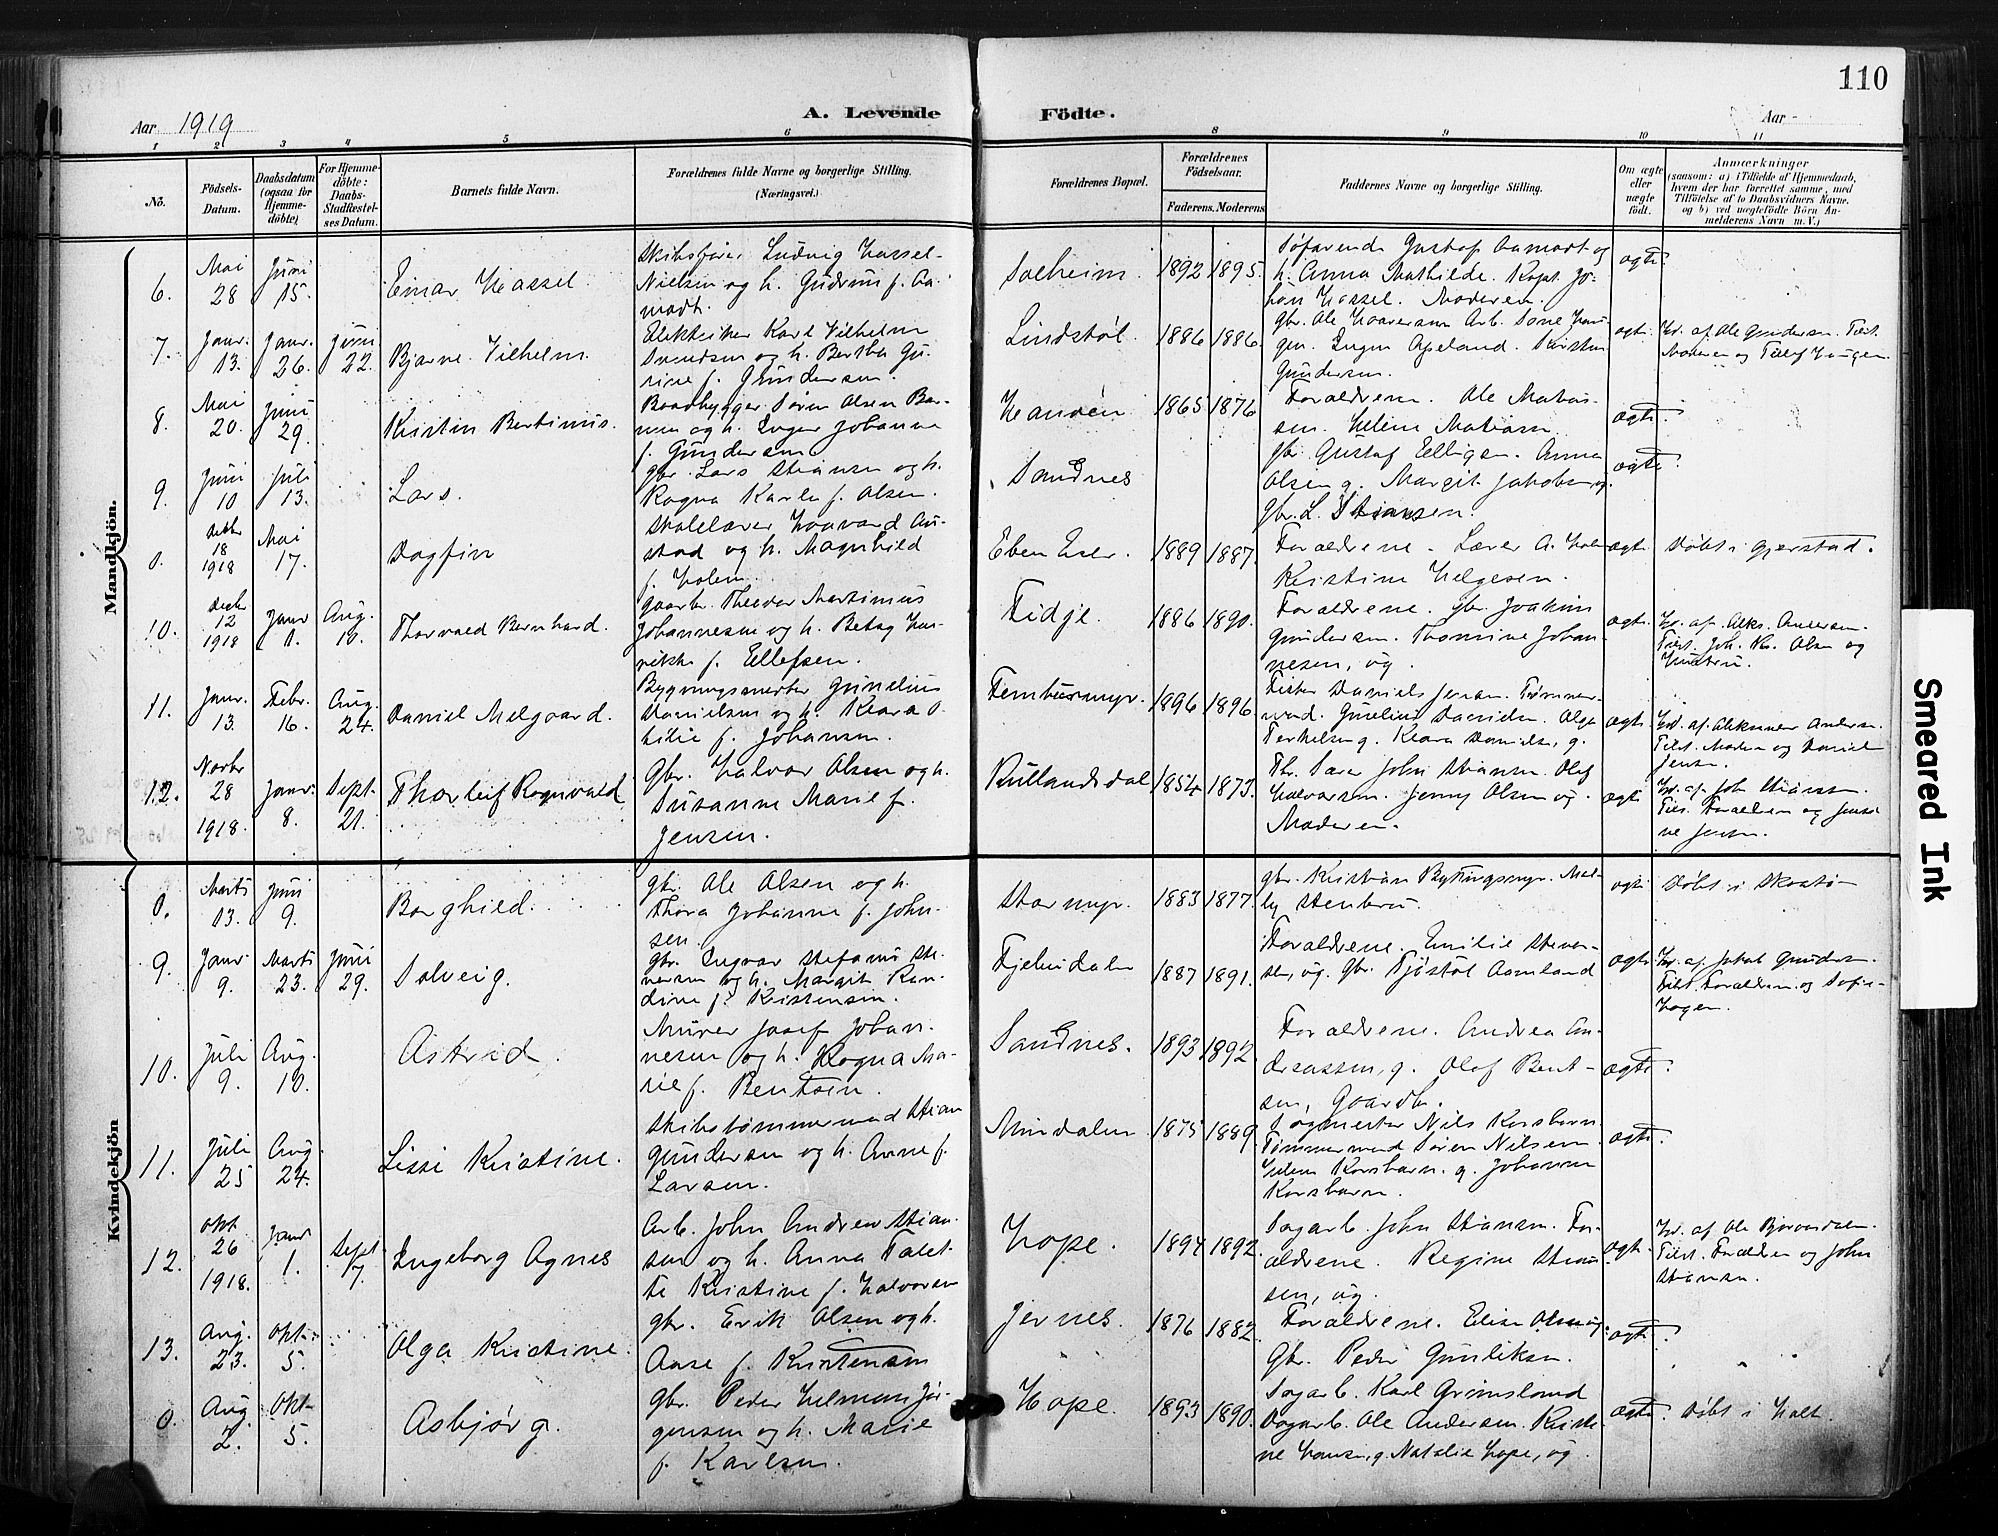 110
Aar 1919
A. Levende
Födte.
Aar
1 2 3 4 5 6 8 9 10 11
No.
Födsels-Datum.
Daabsdatum (ogsaa for Hjemme-döbte)
For Hjemme-döbte: Daabs-Stadfæstelses Datum.
Barnets fulde Navn.
Forældrenes fulde Navne og borgerlige Stilling.
(Næringsvei.)
Forældrenes Bopæl.
Forældrenes Födselsaar.
Faderens. Moderens
Faddernes Navne og borgerlige Stilling.
Om ægte eller uægte födt.
Anmærkninger
(saasom: a) i Tilfælde af Hjemmedaab,
hvem der har forrettet samme, med
Tilföielse af to Daabsvidners Navne.
og b) ved uægtefödte Börn An-
melderens Navn m. V.)
Mandkjön.
6. Mai 28 Juni 15. Einar Hassel.
Skibsfører Ludvig Hassel-
Nielsen og h. Gudrun f. Aa-
modt.
Solheim. 1892 1895.
Søfarende Gustaf Aamodt og
h. Anna Mathilde. Kapt. Jo-
han Hassel. Moderen.
ægte.
7. Janr. 13. Janr. 26. Juni 22. Bjarne Vilhelm.
Elektriker Karl Vilhelm
Svendsen og h. Bertha Gu-
rine f. Gundersen.
Lindstøl. 1886 1886.
gbr. Ole Haaversen Arb. Tone Hau-
gen. Inger Apeland. Kristen
Gundersen.
ægte. Hd. af Ole Gundersen. Tilst.
Moderen og Tellef Haugen
8. Mai 20. Juni 29. Kristen Bertinius.
Baadbygger Søren Olsen Bor-
og h. Inger Johanne
f. Gundersen
1865 1876
Forældrene. Ole Matias-
sen. Helene Matiasen.
ægte.
9. Juni 10 Juli 13. Lars.
gbr. Lars Stiansen og h.
Ragna Karle f. Olsen.
Sandnes
gbr. Gustaf Elligsen. Anna
Olsen g. Margit Jakobsen, og
gbr. L. Stiansen.
ægte.
0. Decbr 18 1918 Mai 17. Dagfin
Skolelærer Haavard Au-
stad og h. Magnhild
f. Holen.
Eben Eser. 1889 1887.
Forældrene. Lærer A. Holen
Kristine Helgesen.
ægte. Døbt i Gjerstad.
10. Decbr 12 1918 Janr 1. Aug. 10. Thorvald Bernhard.
gaardbr. Theodor Martinius
Johannesen og h. Betsy Hen-
rikke f. Ellefsen.
Fidje. 1886 1890.
Forældrene. gbr. Joakim
Gundersen. Thomine Johan-
nesen, ug.
ægte. Hd. af. Aleks. Andersen.
Tilst. Joh. Kr. Olsen og
Hustru.
11. Janr. 13. Febr. 16. Aug. 24. Daniel Melgaard.
Bygningsmester Gunelius
Danielsen og h. Klara O-
tilie f. Johansen.
1896 1896
Fisker Daniels Jensen. Tømmer-
mand. Gunelius Danielsen. Olga
Terkelsen g. Klara Danielsen, g.
ægte. Hd. af. Aleksander Andersen.
Tilst. Moderen og Daniel
Jensen.
12. Novbr 28 1918. Janr. 8. Sept. 21. Thorleif Ragnvald
Gbr. Halvor Olsen og h.
Susanne Marie f.
Jensen.
Rutlandsdal 1854 1873.
John Stiansen. Olaf
Halvorsen. Jenny Olsen ug.
Moderen.
ægte Hd. af Joh. Stiansen.
Tilst. Forældrene og Jensi-
ne Jensen.
Kvindekjön
0. Marts 13. Juni 9. Borghild.
gbr. Ole Olsen og h.
Thora Johanne f. John-
sen.
Stormyr. 1883 1877.
gbr. Kristian Bytingsmyr. Mal-
ly Stenbru.
ægte Døbt i Skaatø
9. Janr. 9. Marts 23. Juni 29. Solveig.
gbr. Ingvar Stefanus Ste-
nersen og h. Margit Kan-
dine f. Kristensen.
1887 1891.
Forældrene. Emilie Stener-
sen, ug. Gbr. Tjøstøl Aamland
ægte. Hd. af Jakob Gundersen
Tilst. Forældrene og Sofie
Hagen.
10. Juli 9. Aug. 10. Astrid.
Murer Josef Johan-
nesen og h. Ragna Ma-
rie f. Bentsen.
Sandnes. 1893 1892.
Forældrene. Andrea An-
dreassen, g. Olaf Bent-
sen, Gaardbr.
ægte.
11. Juli 25 Aug. 24. Lissi Kristine.
Skibstømmermand Stian
Gundersen og h. Anne f.
Larsen.
Mindalen 1875 1889.
Sagmester Nils Korsbarn
Tømmermand Søren Nilsen
Helene Korsbarn. g. Johanne
Korsbarn.
ægte.
12. Okt 26 1918. Janr 1. Sept 7. Ingeborg Agnes
Arb. John Andreas Stian-
sen og h. Anna Talet-
te Kristine f. Halvorsen
Hope. 1894 1892.
Sagarb. John Stiansen. For-
ældrene. Regine Stian-
sen, ug.
ægte. Hd. af Ole Bjorvandalen.
Tilst. Forældrene og John
Stiansen.
13. Aug. 23. Okt. 5. Olga Kristine.
gbr. Erik Olsen og h.
Aase f. Kristensen
Jernes. 1876 1882.
Forældrene. Elise Olsen ug.
Gbr. Peder Gunliksen.
ægte.
0. Aug 2. Okt 5. Asbjørg.
gbr. Peder Helman Jør-
gensen og h. Marie
f. Karlsen.
Hope. 1893 1890.
Sagarb. Karl Grimsland
Sagarb. Ole Andersen. Kristi-
ne Hansen, g. Natalie Hope, ug
ægte. Døbt i Holt.
Smeared Ink